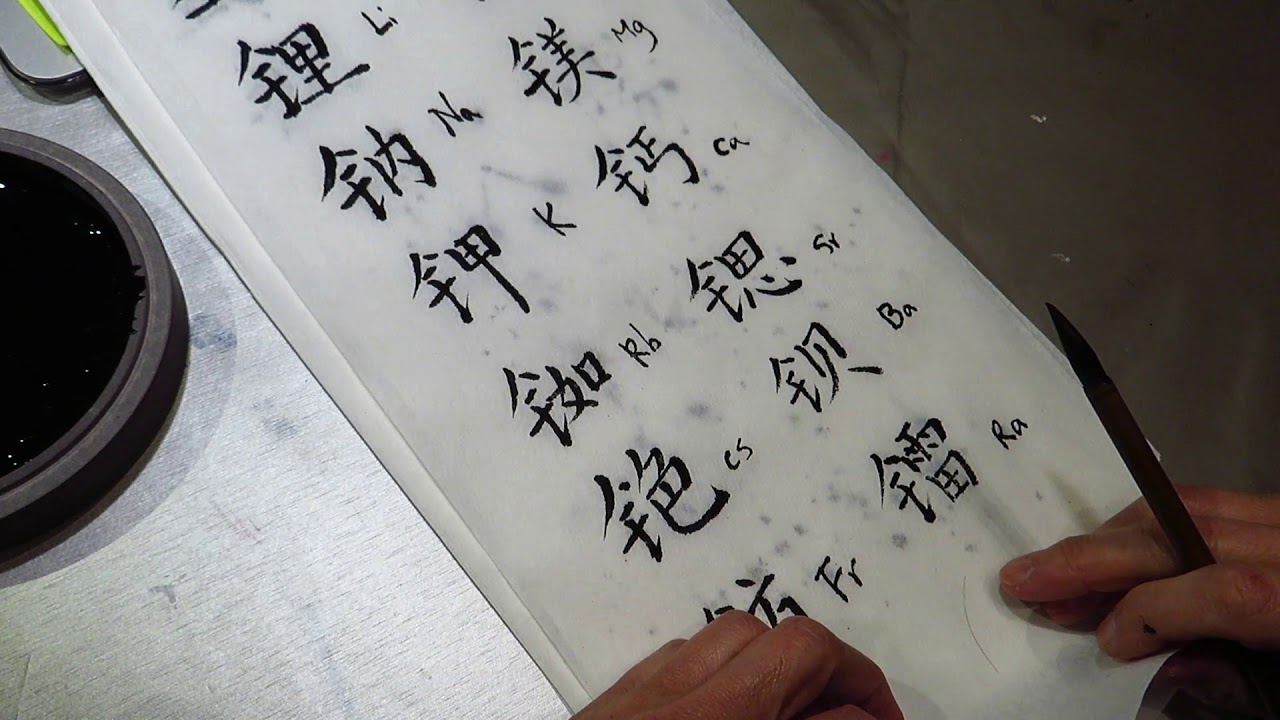 锂 Li 镁 Mg
钠 Na 钙 Ca
钾 K 锶 Sr
铷 Rb 钡 Ba
铯 Cs 镭 Ra
钫 Fr